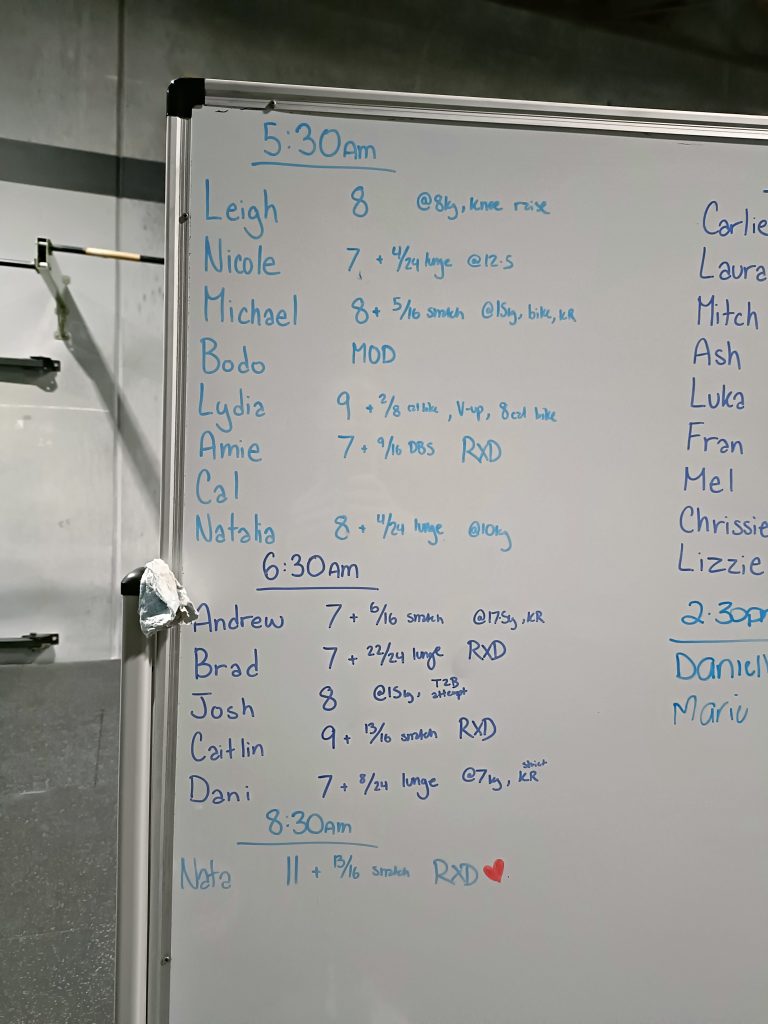 5:30Am
Leigh 8 @8kg, knee raise
Nicole 7 + 4/24 lunge @12.5
Michael 8 + 5/16 snatch @15kg, bike, KR
Bodo MOD
Lydia 9 + 2/8 cal bike, V-up, 8 cal bike
Amie 7 + 9/16 DBS RXD
Cal
Natalia 8 + 4/24 lunge @10kg
6:30Am
Andrew 7 + 6/16 snatch @17.5kg, KR
Brad 7 + 22/24 lunge RXD
Josh 8 @15kg, T2B attempt
Caitlin 9 + 13/16 snatch RXD
Dani 7 + 8/24 lunge @7kg, strict KR
8:30Am
Nata 11 + 13/16 snatch RXD ❤
Carlie
Laura
Mitch
Ash
Luka
Fran
Mel
Chrissie
Lizzie
2:30p
Daniell